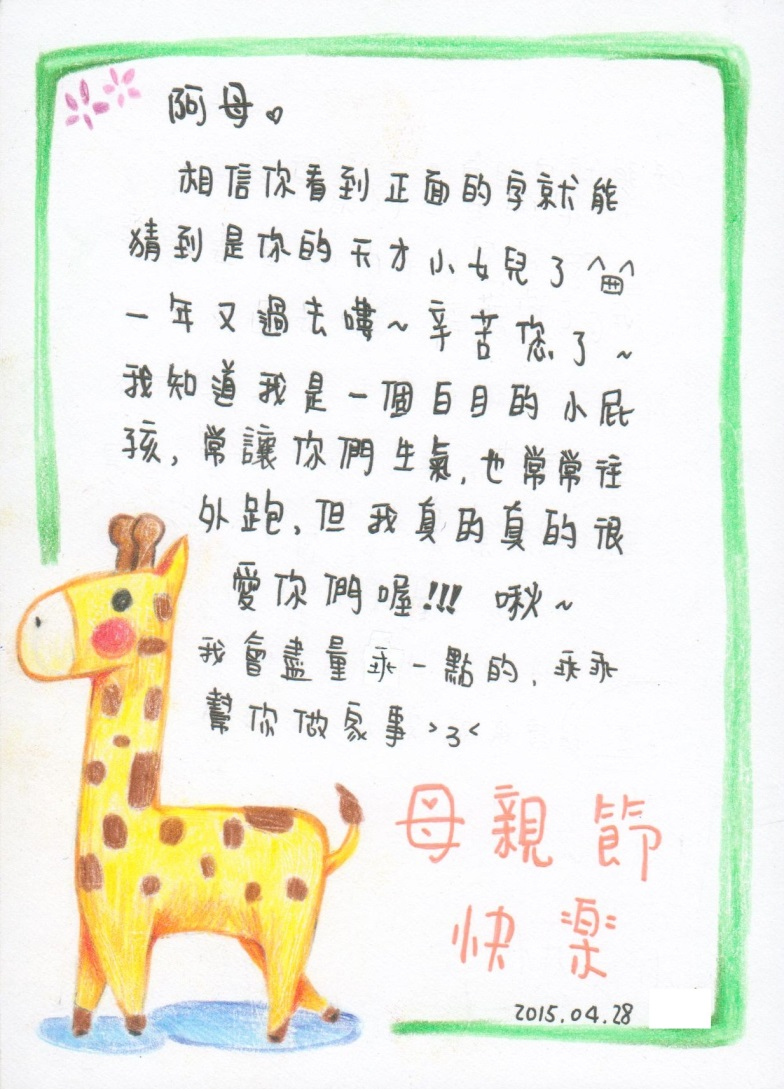 阿母♡
相信你看到正面的字就能
猜到是你的天才小女兒了^皿^
一年又過去嘍~辛苦您了~
我知道我是一個白目的小屁
孩,常讓你們生氣,也常常往
外跑,但我真的真的很
愛你們喔!!! 啾~
我會盡量乖一點的,乖乖
幫你做家事>3<
母親節
快樂
2015.04.28